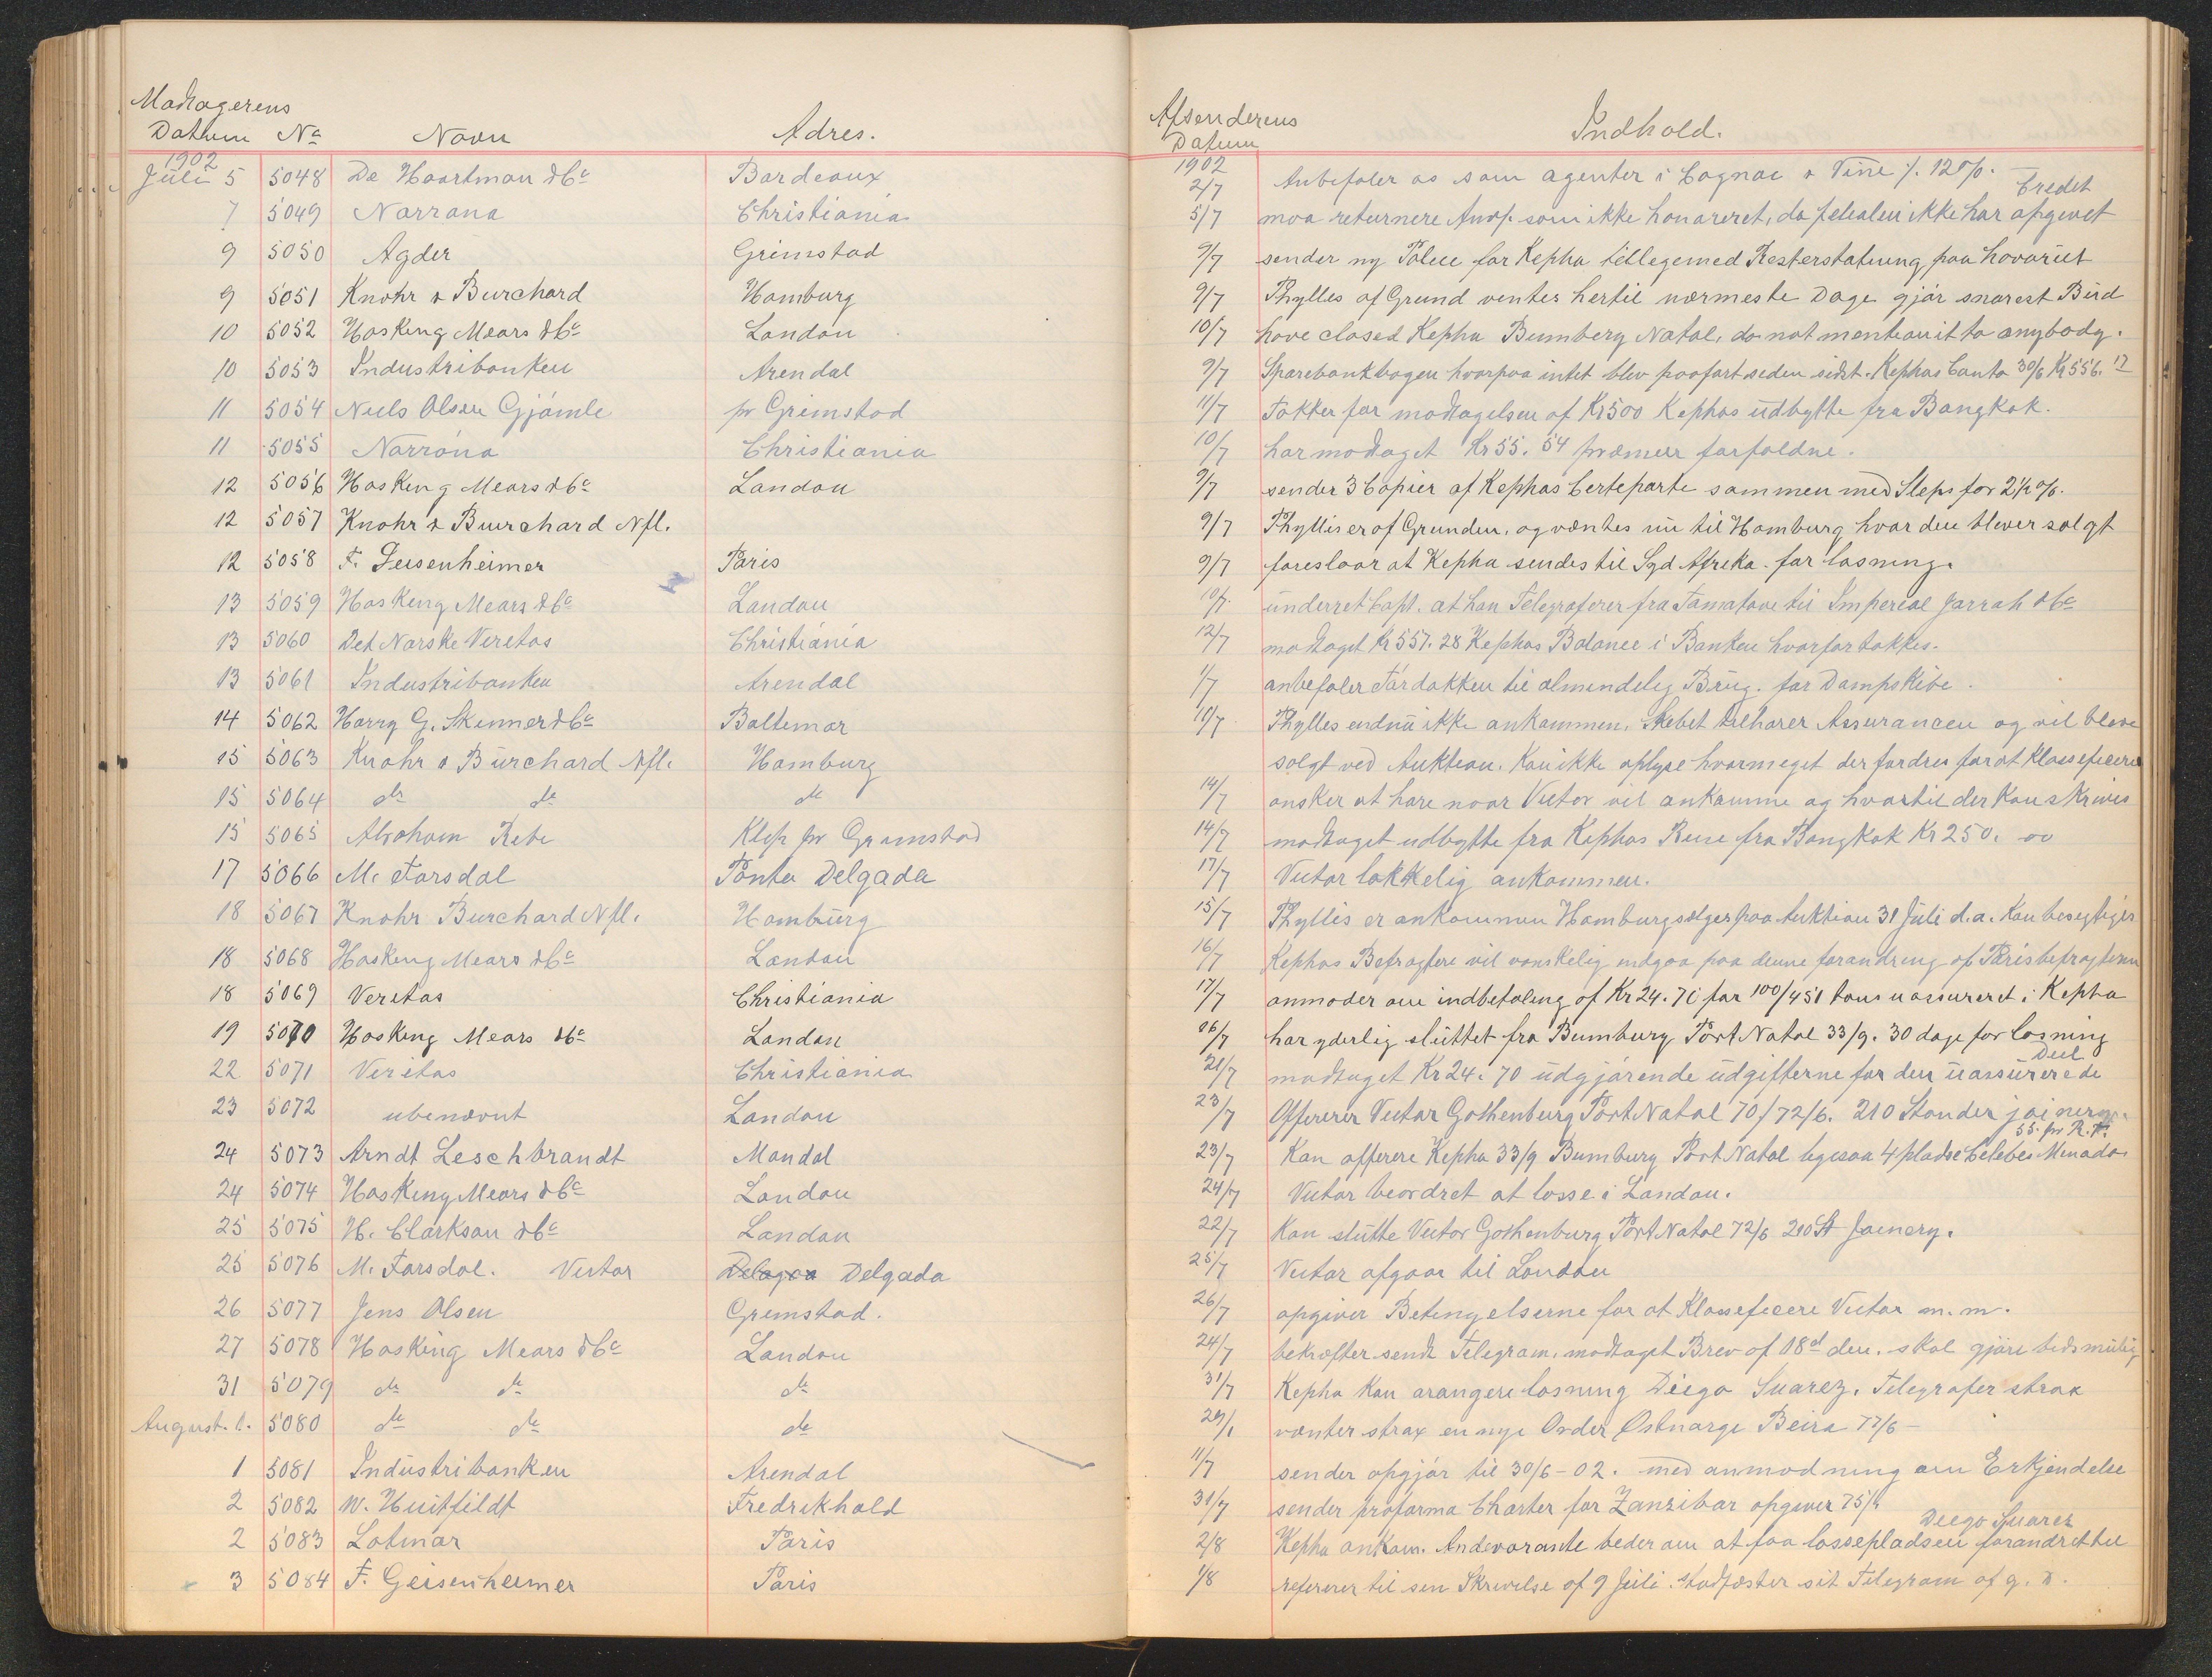 Modtagerens
Datum No Navn Adres.
1902
Juli 5 5048 De Haartman & Co Bordeaux
7 5049 Norrøna Christiania
9 5050 Agder Grimstad
9 5051 Knöhr & Burchard Hamburg
10 5052 Hosking Mears & Co London
10 5053 Industribanken Arendal
11 5054 Niels Olsen Gjömle pr Grimstad
11 5055 Norróna Christiania
12 5056 Hosking Mears & Co London
12 5057 Knöhr & Burchard Nfl.
12 5058 F. Geisenheimer Paris
13 5059 Hosking Mears & Co London
13 5060 Det Norske Veritas Christiania
13 5061 Industribanken Arendal
14 5062 Harry G. Skinner & Co Baltimor
15 5063 Knöhr & Burchard Nfl. Hamburg
15 5064 do do do
15 5065 Abraham Klep pr Grimstad
17 5066 M. Farsdal Ponta Delgada
18 5067 Knöhr Burchard Nfl. Hamburg
18 5068 Hosking Mears & Co London
18 5069 Veritas Christiania
19 5070 Hosking Mears & Co London
22 5071 Veritas Christiania
23 5072 ubenævnt London
24 5073 Arndt Leschbrandt Mandal
24 5074 Hosking Mears & Co London
25 5075 H. Clarkson & Co London
25 5076 M. Farsdal. Victor Delagoa Delgada
26 5077 Jens Olsen Grimstad.
27 5078 Hosking Mears & Co London
31 5079 do do do
August. 1. 5080 do do do
1 5081 Industribanken Arendal
2 5082 W. Huitfildt Fredrikhald
2 5083 Lotmar Paris
3 5084 F. Geisenheimer Paris
Afsenderens
Datum Indhold.
1902
2/7 Anbefaler os som agenter i Cognac & Vine 12 %.
Credit
5/7 maa returnere som ikke honoreret, da ikke har opgivet
9/7 sender ny Police for Kepha tillegemed Resterstatning paa havariet
9/7 Phylles af Grund ventes hertil nærmeste Dage gjør snarest Bud
10/7 have closed Kepha Bumbery Natal, do not mention it to anybody.
9/7 Sparebankbogen hvorpaa intet blev paafört siden sidst. Kephas Conto 30/6 Kr 556. 17
11/7 Takker for modtagelsen af Kr 500 Kephas udbytte fra Bangkok.
10/7 har modtaget Kr 55. 54 præmier forfaldne.
9/7 sender 3 Copier af Kephas Certeparte sammen med Sleps for 2½ %.
9/7 Phyllis er af Grunden, og væntes nu til Hamburg hvor den bliver solgt
9/7 foreslaar at Kepha sendes til Syd Afrika for losning.
10/7 underret Capt. at han Telegraferer fra Tamatave til Imperial Jarrah & Co
12/7 modtaget Kr 557. 28 Kephas Balance i Banken hvorfor takkes.
1/7 anbefaler Tördokken til almindelig Brug. for Dampskibe.
10/7 Phylles endnu ikke ankommen, Skibet tilhører Assurancen og vil blive
solgt ved Auktion. Kan ikke oplyse hvormeget der fordres for at Klassificere
14/7 ønsker at høre naar Victor vil ankomme og hvortil der kan skrives
14/7 modtaget udbytte fra Kephas Reise fra Bangkok Kr 250. 00
17/7 Victor lykkelig ankommen.
15/7 Phyllis er ankommen Hamburg sælges paa Auktion 31 Juli d.a. Kan besegtiges
16/7 Kephas Befragtere vil vanskelig indgaa paa denne forandring af Paris befragterne
17/7 anmoder om indbetaling af Kr 24. 70 for 100/451 tons uassureret i Kepha
16/7 har yderlig sluttet fra Bumbury Port Natal 33/9. 30 dage for losning
Deel
21/7 modtaget Kr 24. 70 udgjörende udgifterne for den uassurerede
23/7 Offerer Victor Gothenburg Port Natal 70/72/6. 210 Stander joinery.
55. pr R.T.
23/7 Kan offerere Kepha 33/9 Bumbury Port Natal ligesaa 4 pladse Celebes Menado
24/7 Victor beordret at losse i London.
22/7 Kan slutte Victor Gothenburg Port Natal 72/6 210 St Joinery.
25/7 Victor afgaar til London
26/7 opgiver Betingelserne for at Klassificere Victor m. m.
24/7 bekræfter sendt Telegram, modtaget Brev af 18d den. skal gjöre
31/7 Kepha kan arangere losning Diego Suarez. Telegrafer strax
29/7 vænter strax en nye Order Østnorge Beira 77/6 –
11/7 sender opgjör til 30/6 – 02. med anmodning om Erkjendelse
31/7 sender proforma Charter for Zanzibar opgiver 75/
Diego Suarez
2/8 Kepha ankom. Andevorante beder om at faa lossepladsen forandret til
1/8 refererer til sin Skrivelse af 9 Juli. Stadfæster sit Telegram af g. D.